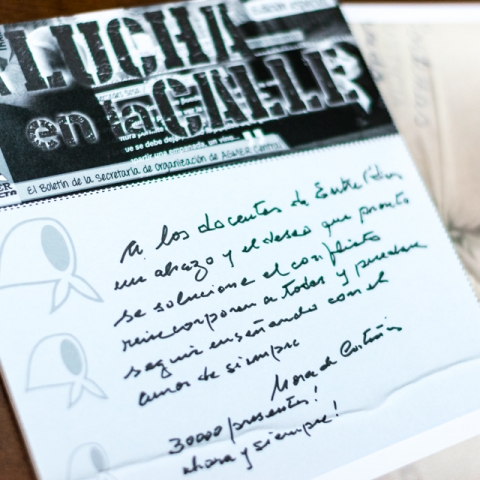 LUCHA
en la CALLE
que se debe deja
El Boletín de la Secretaría de Organización de AGMER Central
A los docentes de Entre Ríos
un abrazo y el deseo que pronto
se solucione el conflicto
reincorporen a todas y puedan
seguir enseñando con el
amor de siempre
Nora de Cortiñas
30000 presentes!
ahora y siempre!